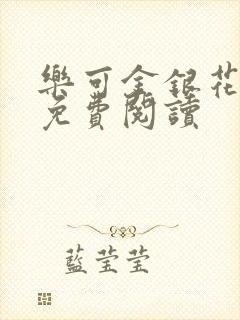 樂可金銀花
免費閱讀
藍莹莹